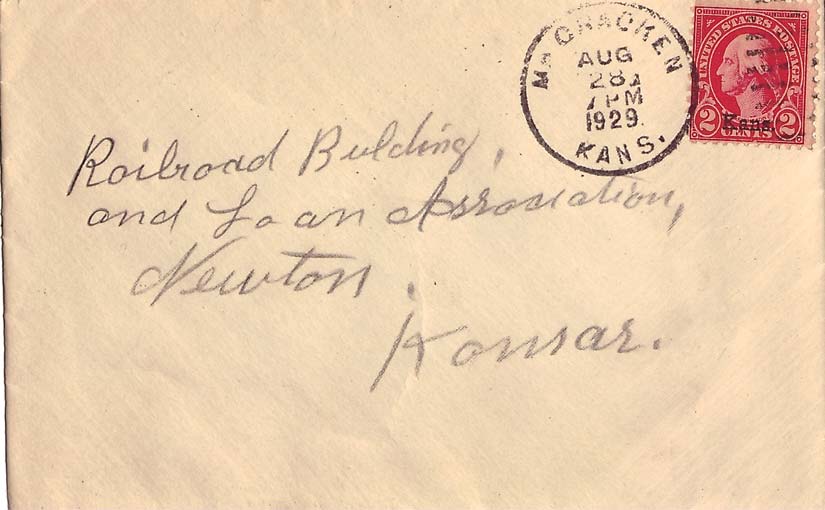 McCRACKEN
AUG
28
7 PM
1929
KANS.
UNITED STATES POSTAGE
Kans.
2 CENTS 2
Railroad Bulding,
and Loan Association,
Newton.
Kansas.